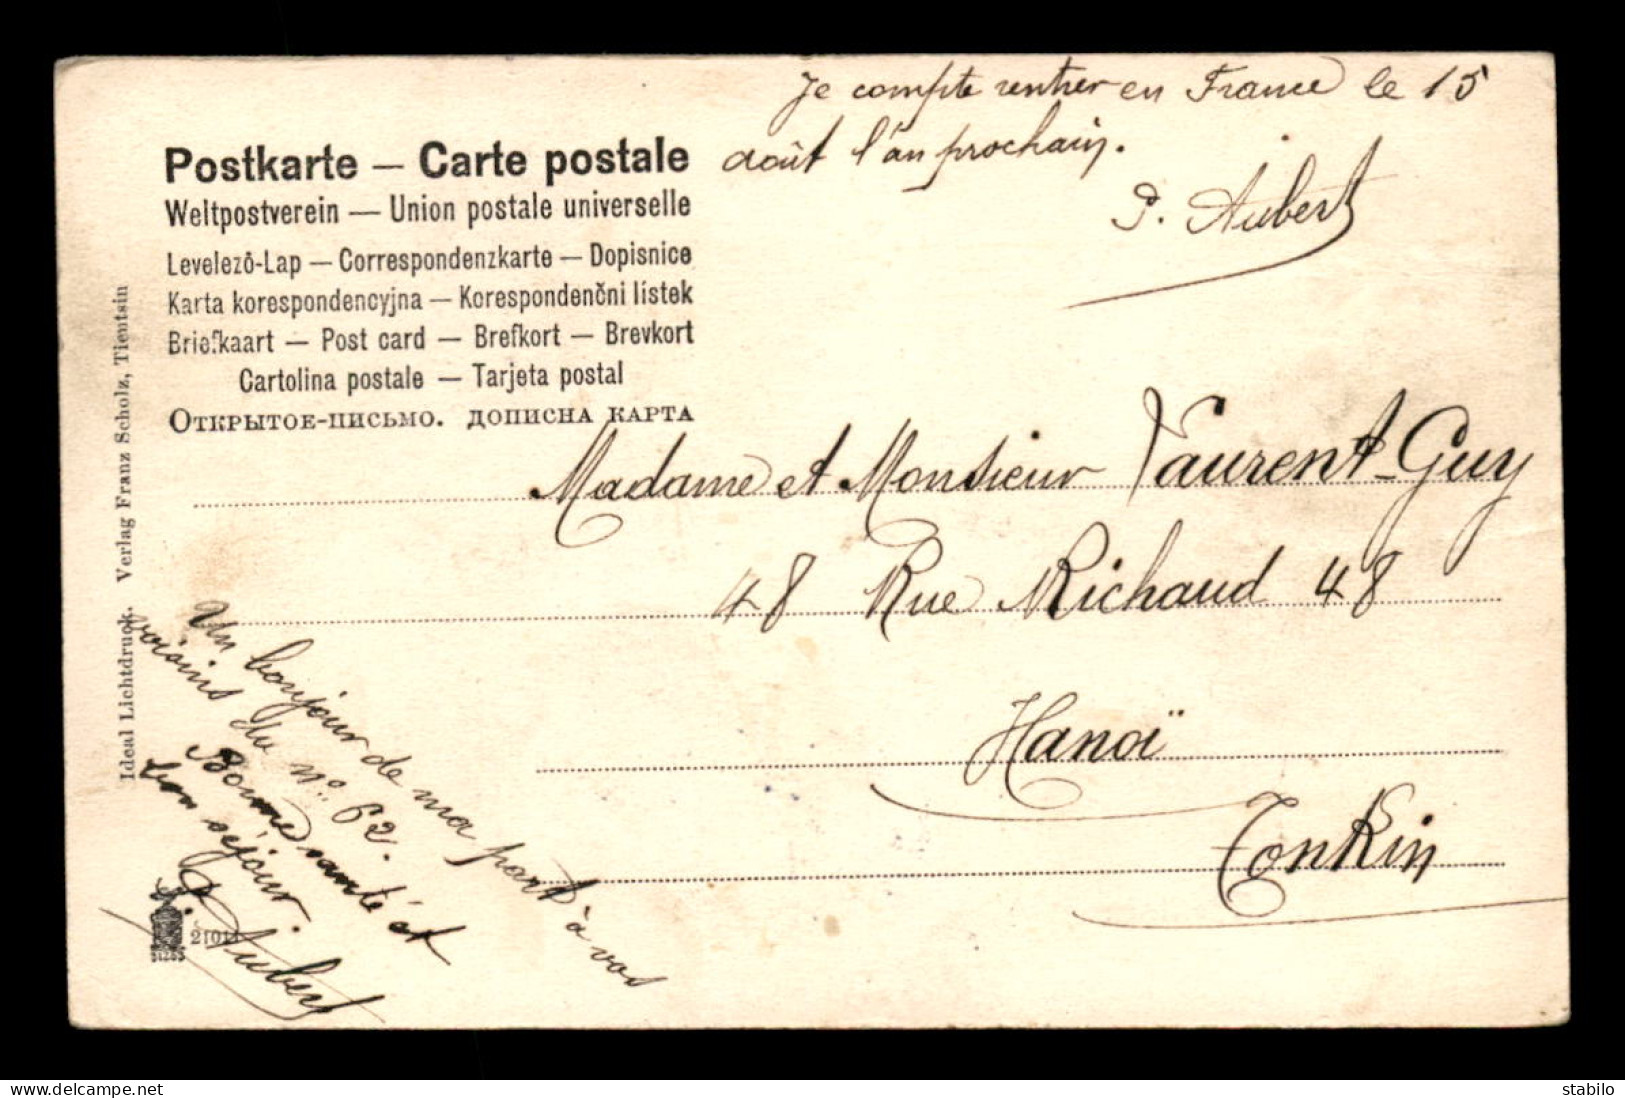 Je compte rentrer en France le 15
août l'an prochain.
P. Aubert
Postkarte — Carte postale
Weltpostverein — Union postale universelle
Levelező-Lap — Correspondenzkarte — Dopisnice
Karta korespondencyjna — Korespondenčni listek
Briefkaart — Post card — Brefkort — Brevkort
Cartolina postale — Tarjeta postal
Открытое-письмо. дописна карта
Ideal Lichtdruck. Verlag Franz Scholz, Tientsin
Madame et Monsieur Laurent-Guy
48 Rue Richaud 48
Hanoï
Tonkin
Un bonjour de ma part à vos
voisins du no. 62.
Bonne santé et
bon séjour.
P. Aubert
delcampe.net
stabilo